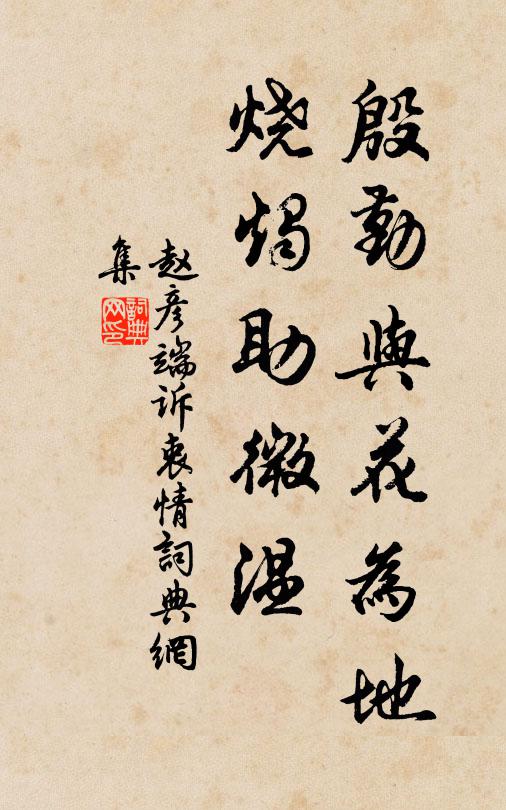 殷勤與花為地
烧烛助微温
赵彦端诉衷情詞典網
集
詞典网印